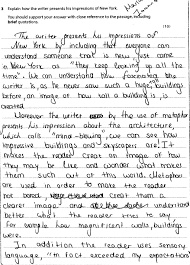 3 Explain how the writer presents his impressions of New York.
You should support your answer with close reference to the passage, including
brief quotations.
The writer presents his impressions of
New York by including that everyone can
understand someone that is new, "just came
to New York" as "they keep looking up all the
time". We can understand how fascinating the
writer is, as he never saw such a huge buildings
before, an image of how tall a building is, is
created.
Moreover the writer by the use of metaphor
presents his impression about the architecture,
which calls "mind-blowing", we can see how
impressive buildings and skyscapers are. It
makes the reader create an image of how
they may be like and wonder what makes
them such out of this world. Metaphors
are used in order to make the reader
not bored, create them a
clearer image and understand
better what the writer tries to say
for example how magnificent walls, buildings
were.
In addition the reader uses sensory
language, "in fact exceeded my expectations